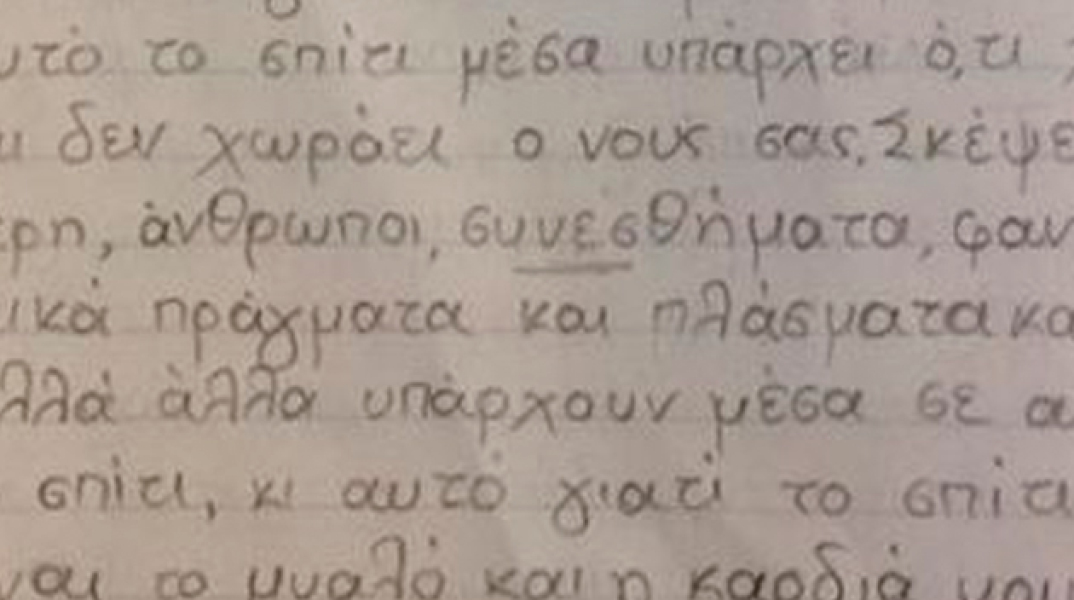 υτό το σπίτι μέσα υπάρχει ό,τι
δεν χωράει ο νους σας. Σκέψε
έρη, άνθρωποι, συνεσθήματα, φαν
ικά πράγματα και πλάσματα κα
λλά άλλα υπάρχουν μέσα σε αυ
σπίτι, κι αυτό γιατί το σπίτι
ναι το μυαλό και η καρδιά μου